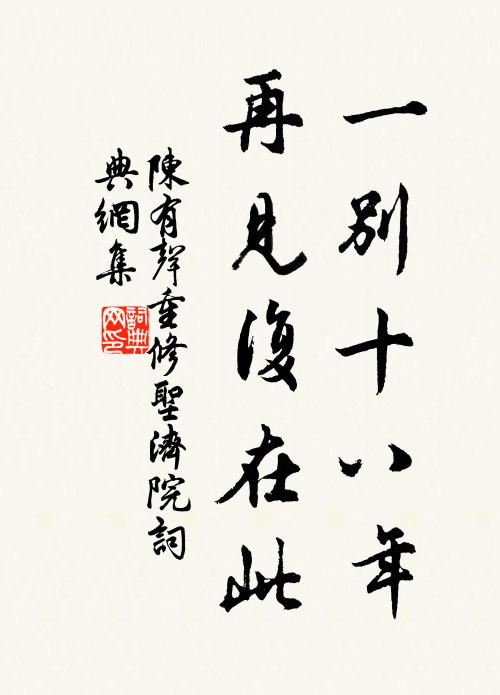 一別十八年
再見復在此
陳有聲重修聖濟院詞
典網集
詞典
网印